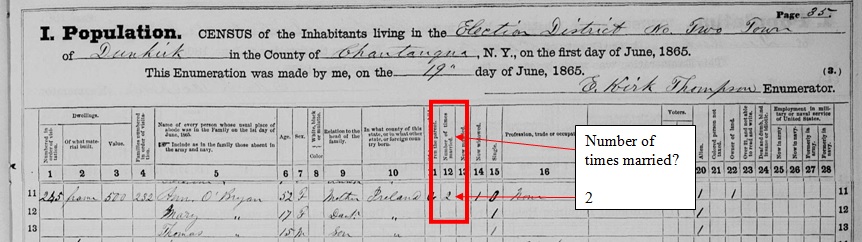 Page 35.
I. Population. CENSUS of the Inhabitants living in the Election District No. Two Town
of Dunkirk in the County of Chautauqua, N. Y., on the first day of June, 1865.
This Enumeration was made by me, on the 19" day of June, 1865. (3.)
E. Kirk Thompson Enumerator.
Dwellings.
Voters.
Employment in military or naval service of United States.
Numbered in order of visitation.
Of what material built.
Value.
Families numbered in order of visitation.
Name of every person whose usual place of abode was in the Family on the 1st day of June, 1865.
Include as in the family those absent in the army and navy.
Age.
Sex.
Color
Relation to the head of the family.
In what county of this state, or in what other state, or foreign country born.
Number of times married.
Now widowed.
Single.
Profession, trade or occupa
Aliens.
Owner of land.
Now in army.
Now in navy.
Formerly in army.
Formerly in navy.
1 2 3 4 5 6 7 8 9 10 11 12 13 14 15 16 20 21 22 23 24 25 26 27 28
11 245 frame 500 232 Ann O'Bryan 52 F Mother Ireland 6 2 1 0 None 1 1 11
12 Mary " 17 F Daut " 1 12
13 Thomas " 15 M Son " 1 13
Number of
times married?
2